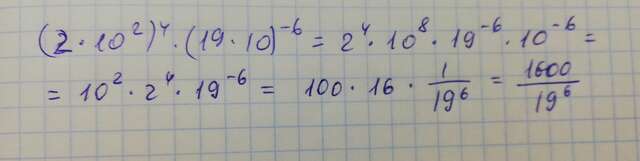 (2 · 10²)⁴ · (19 · 10)⁻⁶ = 2⁴ · 10⁸ · 19⁻⁶ · 10⁻⁶ =
= 10² · 2⁴ · 19⁻⁶ = 100 · 16 · 1/19⁶ = 1600/19⁶